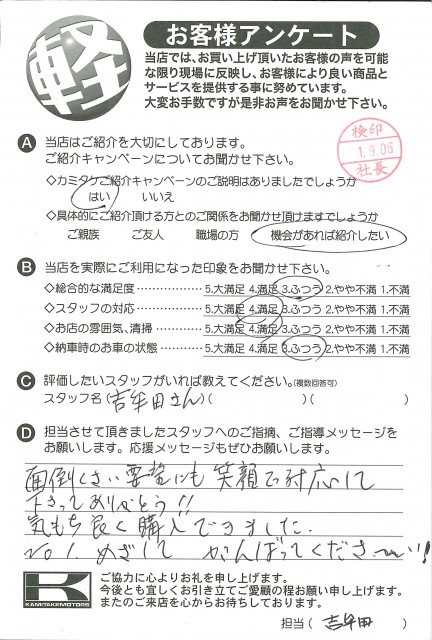 軽
お客様アンケート
当店では、お買い上げ頂いたお客様の声を可能
な限り現場に反映し、お客様により良い商品と
サービスを提供する事に努めています。
大変お手数ですが是非お声をお聞かせ下さい。
検印
1.9.06
社長
A 当店はご紹介を大切にしております。
ご紹介キャンペーンについてお聞かせ下さい。
◇カミタケご紹介キャンペーンのご説明はありましたでしょうか
はい いいえ
◇具体的にご紹介頂ける方とのご関係をお聞かせ頂けますでしょうか
ご親族 ご友人 職場の方 機会があれば紹介したい
B 当店を実際にご利用になった印象をお聞かせ下さい。
◇総合的な満足度 ・・・・・・・・・・・・ 5.大満足 4.満足 3.ふつう 2.やや不満 1.不満
◇スタッフの対応 ・・・・・・・・・・・・ 5.大満足 4.満足 3.ふつう 2.やや不満 1.不満
◇お店の雰囲気、清掃 ・・・・・・・・ 5.大満足 4.満足 3.ふつう 2.やや不満 1.不満
◇納車時のお車の状態 ・・・・・・・・ 5.大満足 4.満足 3.ふつう 2.やや不満 1.不満
C 評価したいスタッフがいれば教えてください。(複数回答可)
スタッフ名(吉牟田さん)( )( )
D 担当させて頂きましたスタッフへのご指摘、ご指導メッセージを
お願いします。応援メッセージもぜひお願いします。
面倒くさい要望にも笑顔で対応して
下さってありがとう!!
気もち良く購入できました.
No1.めざして がんばってくださーい!!
K
KAMITAKEMOTORS
ご協力に心よりお礼を申し上げます。
今後とも宜しくお引き立てご愛顧の程お願い申し上げます。
またのご来店を心からお待ちしております。
担当( 吉牟田 )